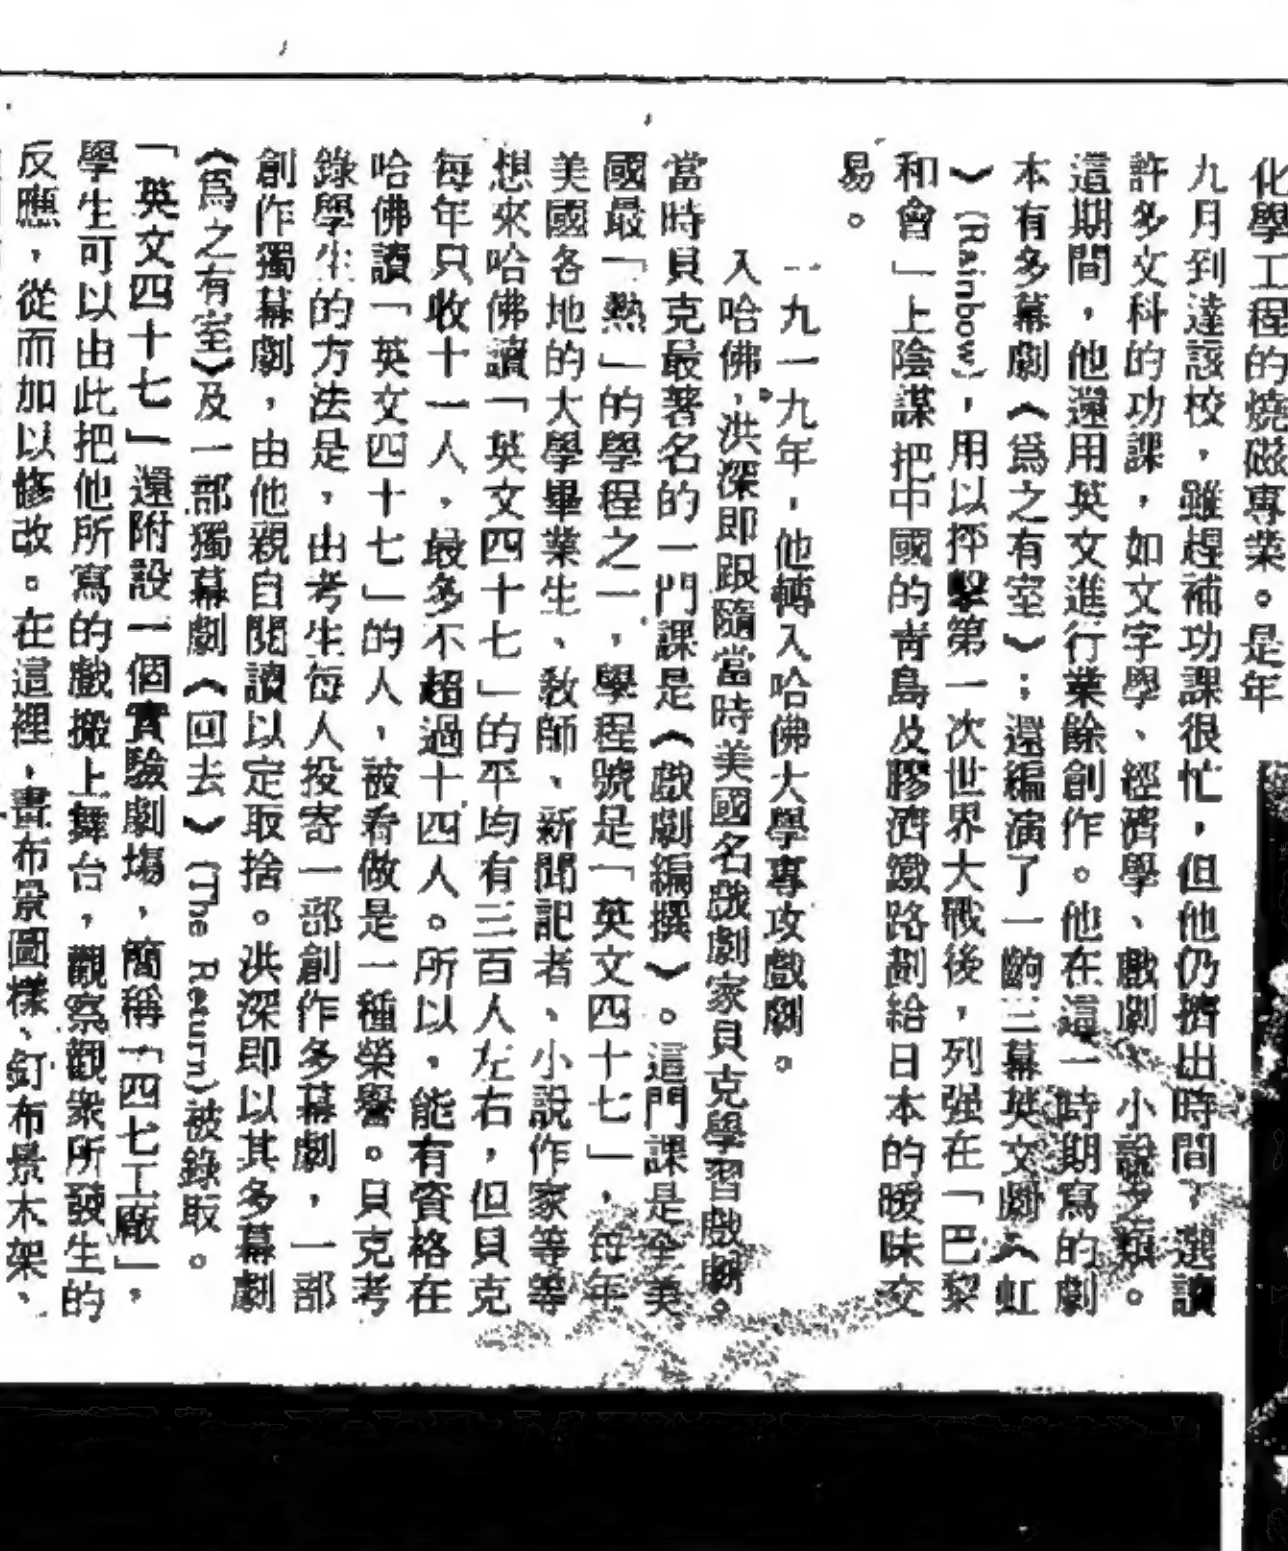 化學工程的燒磁專業。是年
九月到達該校，雖趕補功課很忙，但他仍擠出時間，選讀
許多文科的功課，如文字學、經濟學、戲劇、小說之類。
這期間，他還用英文進行業餘創作。他在這一時期寫的劇
本有多幕劇《爲之有室》；還編演了一齣三幕英文劇《虹
》(Rainbow)，用以抨擊第一次世界大戰後，列强在「巴黎
和會」上陰謀把中國的靑島及膠濟鐵路劃給日本的曖昧交
易。
一九一九年，他轉入哈佛大學專攻戲劇。
入哈佛，洪深即跟隨當時美國名戲劇家貝克學習戲劇。
當時貝克最著名的一門課是《戲劇編撰》。這門課是全美
國最「熱」的學程之一，學程號是「英文四十七」，每年
美國各地的大學畢業生、敎師、新聞記者、小說作家等等
想來哈佛讀「英文四十七」的平均有三百人左右，但貝克
每年只收十一人，最多不超過十四人。所以，能有資格在
哈佛讀「英文四十七」的人，被看做是一種榮譽。貝克考
錄學生的方法是，由考生每人投寄一部創作多幕劇，一部
創作獨幕劇，由他親自閱讀以定取捨。洪深即以其多幕劇
《爲之有室》及一部獨幕劇《回去》(The Return)被錄取。
「英文四十七」還附設一個實驗劇塲，簡稱「四七工廠」，
學生可以由此把他所寫的戲搬上舞台，觀察觀衆所發生的
反應，從而加以修改。在這裡，畫布景圖樣、釘布景木架、